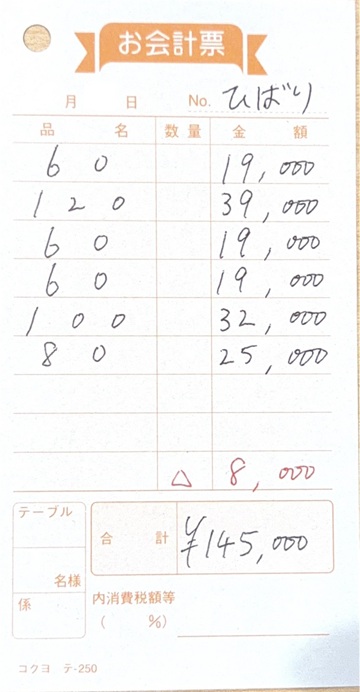 お会計票
月 日 No. ひばり
品 名 数量 金 額
60 19,000
120 39,000
60 19,000
60 19,000
100 32,000
80 25,000
△ 8,000
テーブル
名様
係
合 計 ¥145,000
内消費税額等
( %)
コクヨ テ-250